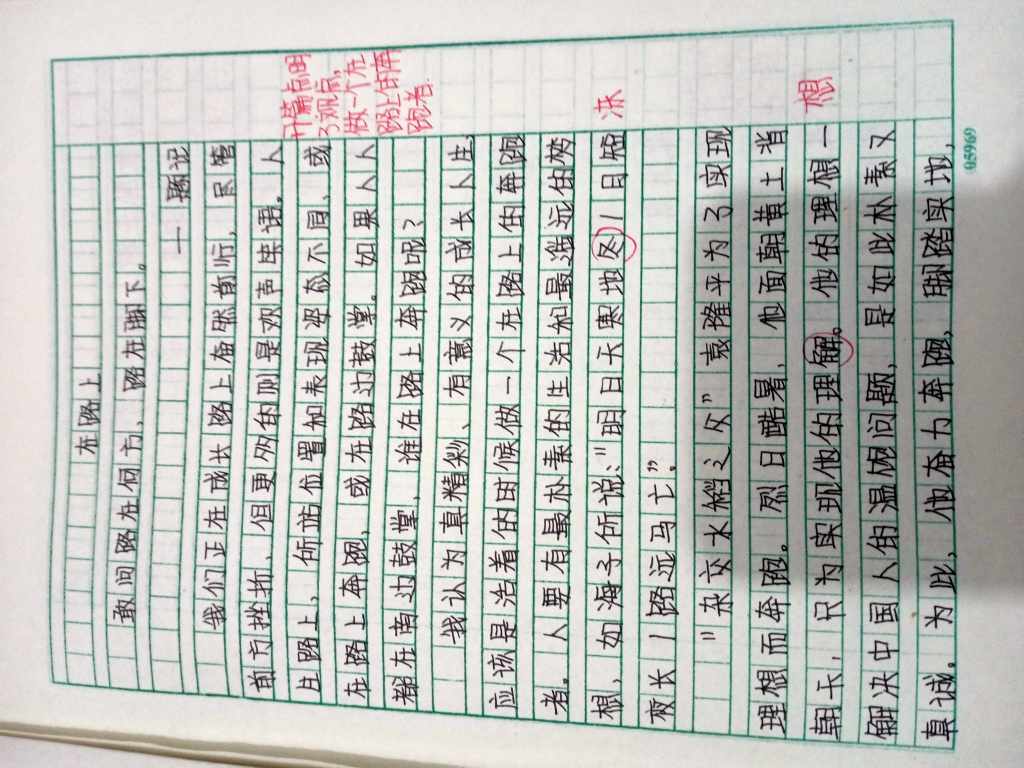 在路上
敢问路在何方，路在脚下。
—题记
我们正在成长路上奋然前行，尽管
前方挫折，但更多的则是欢声笑语。人
生路上，所站位置和表现姿态不同，或
在路上奔跑，或在路边鼓掌。如果人人
都在南边鼓掌，谁在路上奔跑呢？
我认为真精彩、有意义的成长人生，
应该是活着的时候做一个在路上的奔跑
者。人要有最朴素的生活和最遥远的梦
想，如海子所说："明日天寒地冬/日短
夜长/路远马亡"。
"杂交水稻之父"袁隆平为了实现
理想而奔跑。烈日酷暑，他面朝黄土背
朝天，只为实现他的理解。他的理想一
解决中国人的温饱问题，是如此朴素又
真诚。为此，他奋力奔跑，脚踏实地，
开篇点明
了观点，
做一个在
路上的奔
跑者.
冻
想
05969